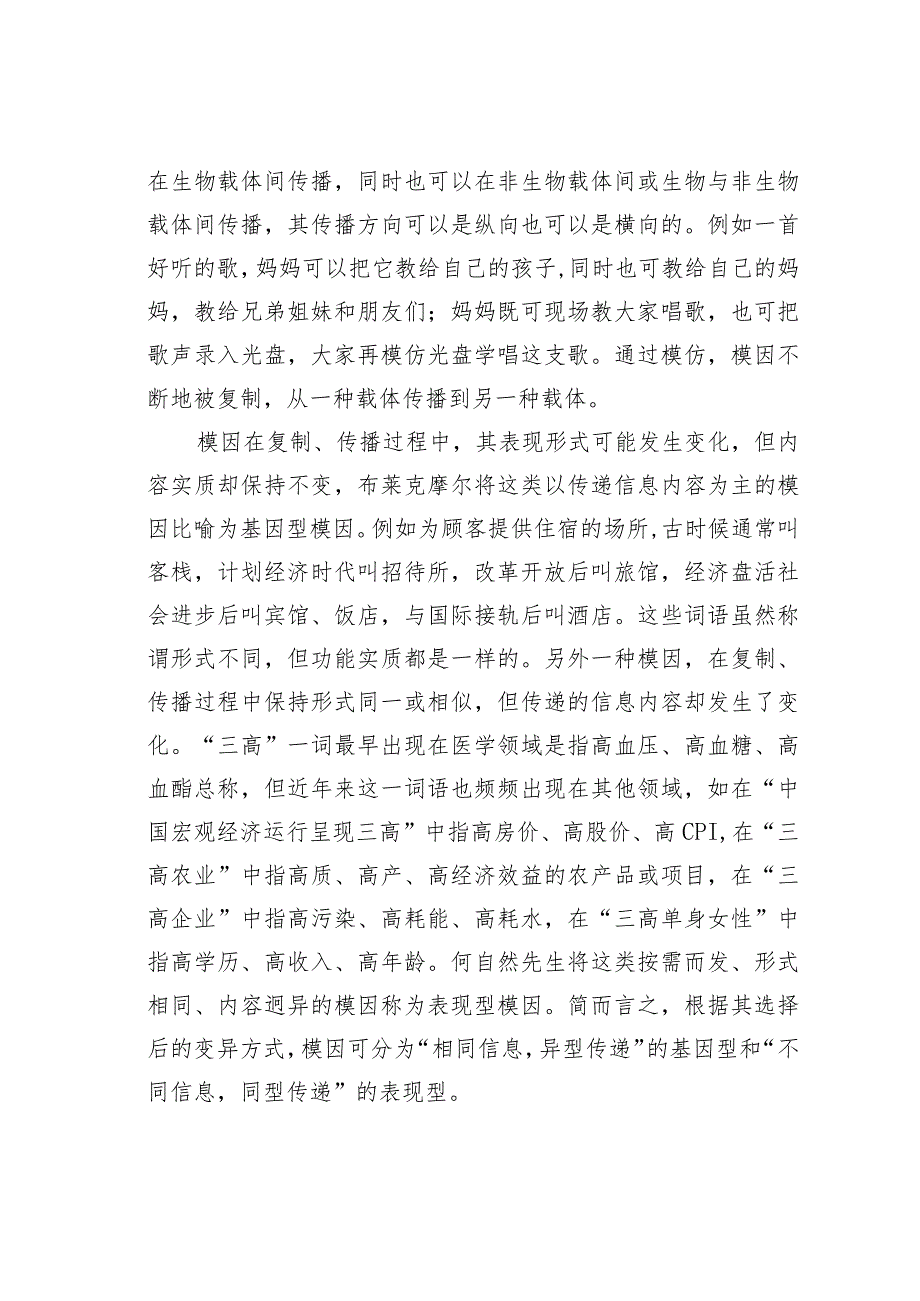 在生物载体间传播，同时也可以在非生物载体间或生物与非生物
载体间传播，其传播方向可以是纵向也可以是横向的。例如一首
好听的歌,妈妈可以把它教给自己的孩子,同时也可教给自己的妈
妈，教给兄弟姐妹和朋友们；妈妈既可现场教大家唱歌，也可把
歌声录入光盘，大家再模仿光盘学唱这支歌。通过模仿，模因不
断地被复制，从一种载体传播到另一种载体。
模因在复制、传播过程中，其表现形式可能发生变化，但内
容实质却保持不变，布莱克摩尔将这类以传递信息内容为主的模
因比喻为基因型模因。例如为顾客提供住宿的场所,古时候通常叫
客栈，计划经济时代叫招待所，改革开放后叫旅馆，经济盘活社
会进步后叫宾馆、饭店，与国际接轨后叫酒店。这些词语虽然称
谓形式不同，但功能实质都是一样的。另外一种模因，在复制、
传播过程中保持形式同一或相似，但传递的信息内容却发生了变
化。“三高”一词最早出现在医学领域是指高血压、高血糖、高
血酯总称，但近年来这一词语也频频出现在其他领域，如在“中
国宏观经济运行呈现三高”中指高房价、高股价、高CPI,在“三
高农业”中指高质、高产、高经济效益的农产品或项目，在“三
高企业”中指高污染、高耗能、高耗水，在“三高单身女性”中
指高学历、高收入、高年龄。何自然先生将这类按需而发、形式
相同、内容迥异的模因称为表现型模因。简而言之，根据其选择
后的变异方式,模因可分为“相同信息,异型传递”的基因型和“不
同信息，同型传递”的表现型。